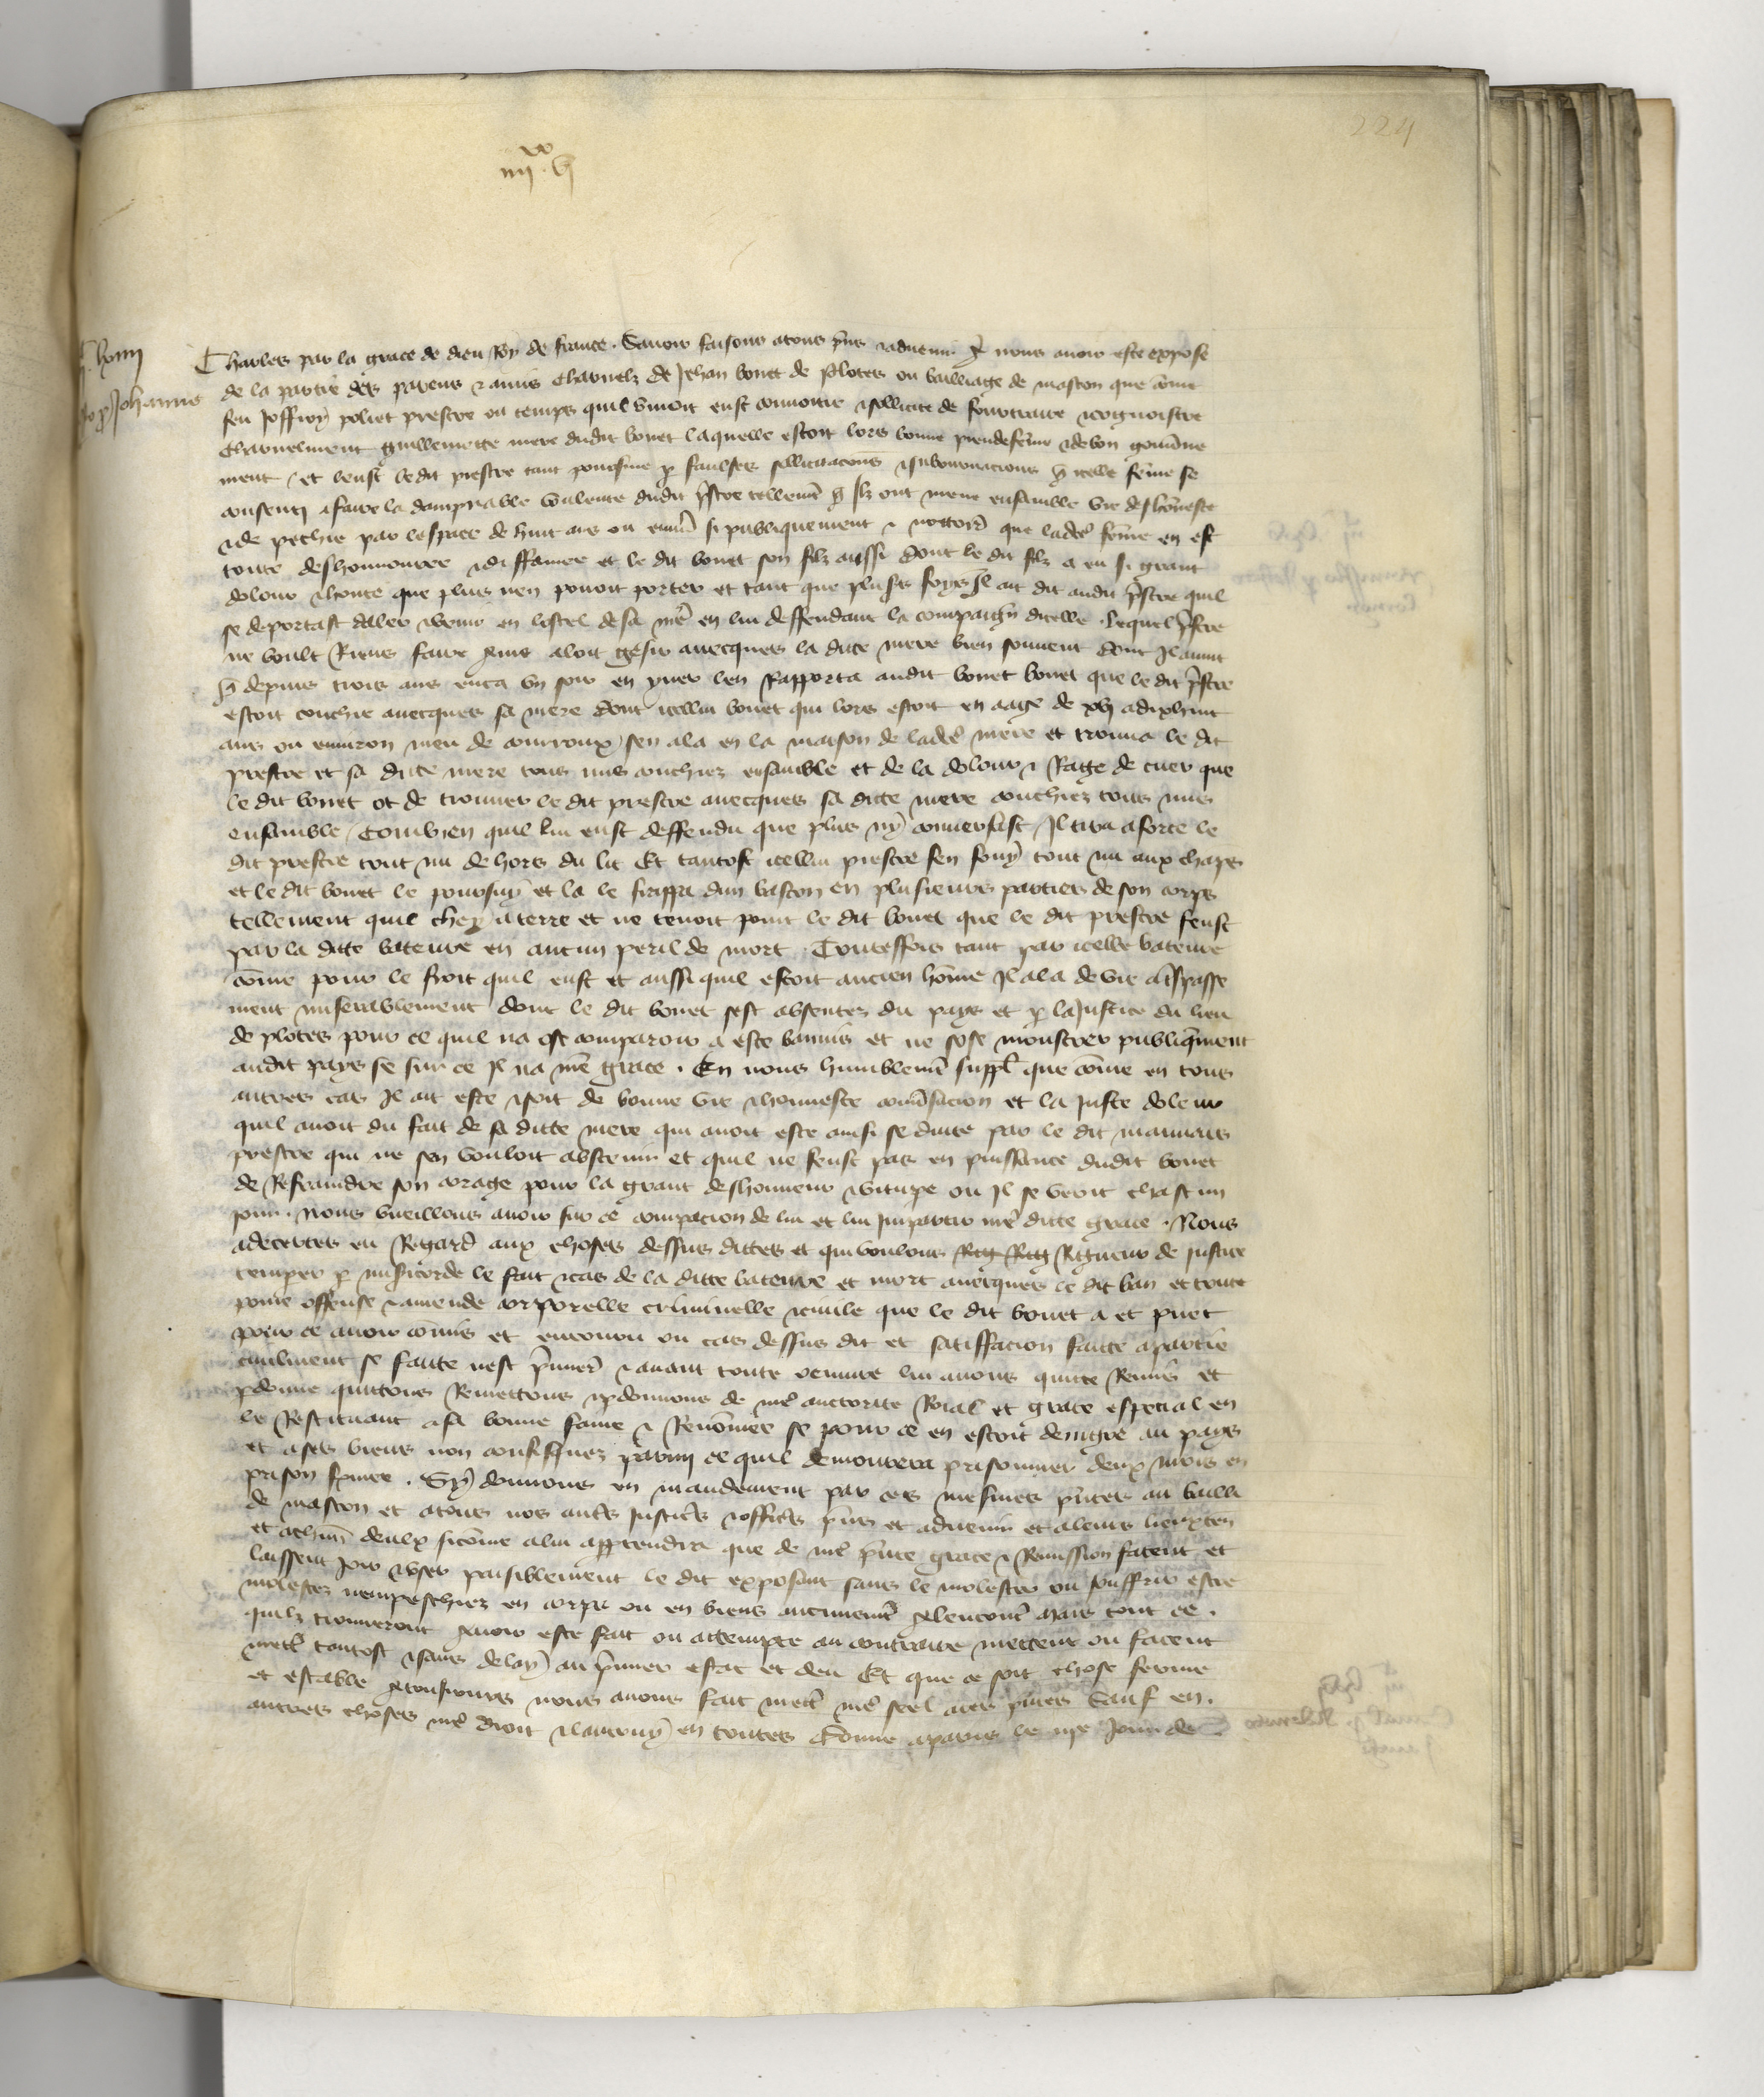 224
iiii xx v
Charles par la grace de dieu Roy de france. Savoir faisons a tous p̃ns & advenir q̃ nous avoir este expose
de la partie des parens & amis charnelz de Jehan bonet de Plotes ou bailliage de mascon que cõme
feu Joffroy poliet prestre ou temps quil vivoit eust convoitie & sollicite de fortraire & cognoistre
charnelment guillemette mere dudit bonet laquelle estoit lors bonne preudefẽme & de bon gouv̾ne
ment / et leust ledit prestre tant pourssuie p̱ faulses sollicitacions & subornacions q̃ icelle fẽme se
consenti a faire la dampnable voulente dudit p̃stre tellemẽt q̃ Ilz ont mene ensamble vie deshõneste
& de pechie par lespace de huit ans ou envir̃ si publiquement & nottoir̃ que ladc̃e fẽme en est
toute deshonnouree & diffamee et le dit bonet son filz aussi dont le dit filz a eu si grant
dolour & honte que plus nen povoit porter et tant que plus̃rs foys Il ait dit audit p̃stre quil
se deportast daler & venir en lostel de sa mẽ en lui deffendant la compaign̄ dicelle. Lequel p̃stre
ne voult Riens faire q̃ ne aloit gesir avecques la dicte mere bien souvent dont Il avint
q̃ depuis trois ans enca un soir en yver len Rapporta audit bonet bonet que le dit p̃stre
estoit couchie avecques sa mere dont icellui bonet qui lors estoit en aage de xvij a dixhuit
ans ou environ meu de courroux sen ala en la maison de ladc̃e mere et trouva le dit
prestre et sa dicte mere tous nus couchiez ensamble et de la dolour & Rage de cuer que
le dit bonet ot de trouver le dit prestre avecques sa dicte mere couchiez tous nus
ensamble / Combien quil lui eust deffendu que plus ny conversast / Il tira a force le
dit prestre tout nu dehors du lit Et tantost icellui prestre sen fouy tout nu aux champs
et le dit bonet le poursuy et la le frappa dun baston en plusieurs parties de son corps
tellement quil chey a terre et ne tenoit point le dit bonet que le dit prestre feust
par la ditte bateure en aucun peril de mort. Touteffois tant par icelle bateure
cõme pour le froit quil eust et aussi quil estoit ancien hõme Il ala de vie a t̃spasse
ment miserablement dont le dit bonet sest absentez du pays et p̱ la Justice du lieu
de plotes pour ce quil na ose comparoir a este bannis et ne sose monstrer publiq̃ment
audit pays se sur ce Il na nr̃e grace. En nous humblemẽt suppl̃ que cõme en tous
autres cas Il ait este & soit de bonne vie & honneste conv̾sacion et la Juste dolour
quil avoit du fait de sa ditte mere qui avoit este ainsi seduite par le dit mauvais
prestre qui ne sen vouloit abstenir et quil ne feust pas en puissance dudit bonet
de Refraindre son corage pour la grant deshonneur & vitupe ou Il se veoit chascun
jour. Nous vueillons avoir sur ce compacion de lui et lui Impartir nr̃e dicte grace. Nous
adecertes eu Regard aux choses dessus dittes et qui voulons Rig Rig Rigueur de justice
temper p̱ mis̃icorde le fait & cas de la ditte bateure et mort avecques le dit ban et toute
poine offense & amende corporelle criminelle & civile que le dit bonet a et puet
pour ce avoir cõmis et encouru ou cas dessus dit et satiffacion faitte a partie
civilment se faitte nest p̃mier̃ & avant toute oeuvre lui avons quitte Remis et
p̱donne quittons Remettons & p̱donnons de nr̃e auctorite Roial et grace especial en
le Restituant a sa bonne fame & Renõmee se pour ce en estoit denigre au pays
et a ses biens non confisquez parmi ce quil demourera prisonnier deux mois en
prison fermee. Sy donnons en mandement par ces mesmes p̃ntes au bailli
de mascon et a tous nos aut̃s Justic̃s & offic̃s p̃ns et advenir et a leurs lieuxten̄
et a chũn deulx sicõme a lui appartendra que de nr̃e p̃nte grace & Remission facent et
laissent joir & user paisiblement le dit exposant sans le molester ou souffrir estre
molestez nempeschiez en corps ou en biens aucunemẽt a lencont̃ Mais tout ce.
quilz trouveront avoir este fait ou attempte au contraire mettent ou facent
mett̃ tantost & sans delay au p̃mier estat et deu Et que ce soit chose ferme
et estable a tousjours nous avons fait mett̃ nr̃e seel a ces p̃ntes Sauf en.
autres choses nr̃e droit & lautruy en toutes Donne a paris le iije jour de